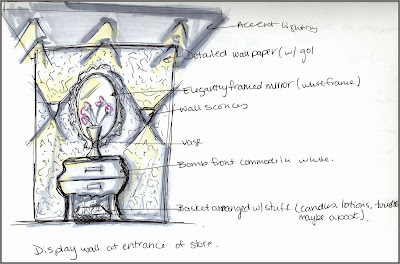 Accent Lighting
Detailed wallpaper (w/ gol
Elegantly framed mirror (white frame)
Wall sconces
vase
Bomb front commode in white.
Basket arranged w/ stuff (candles, lotions,
maybe a book).
Display wall at entrance of store.